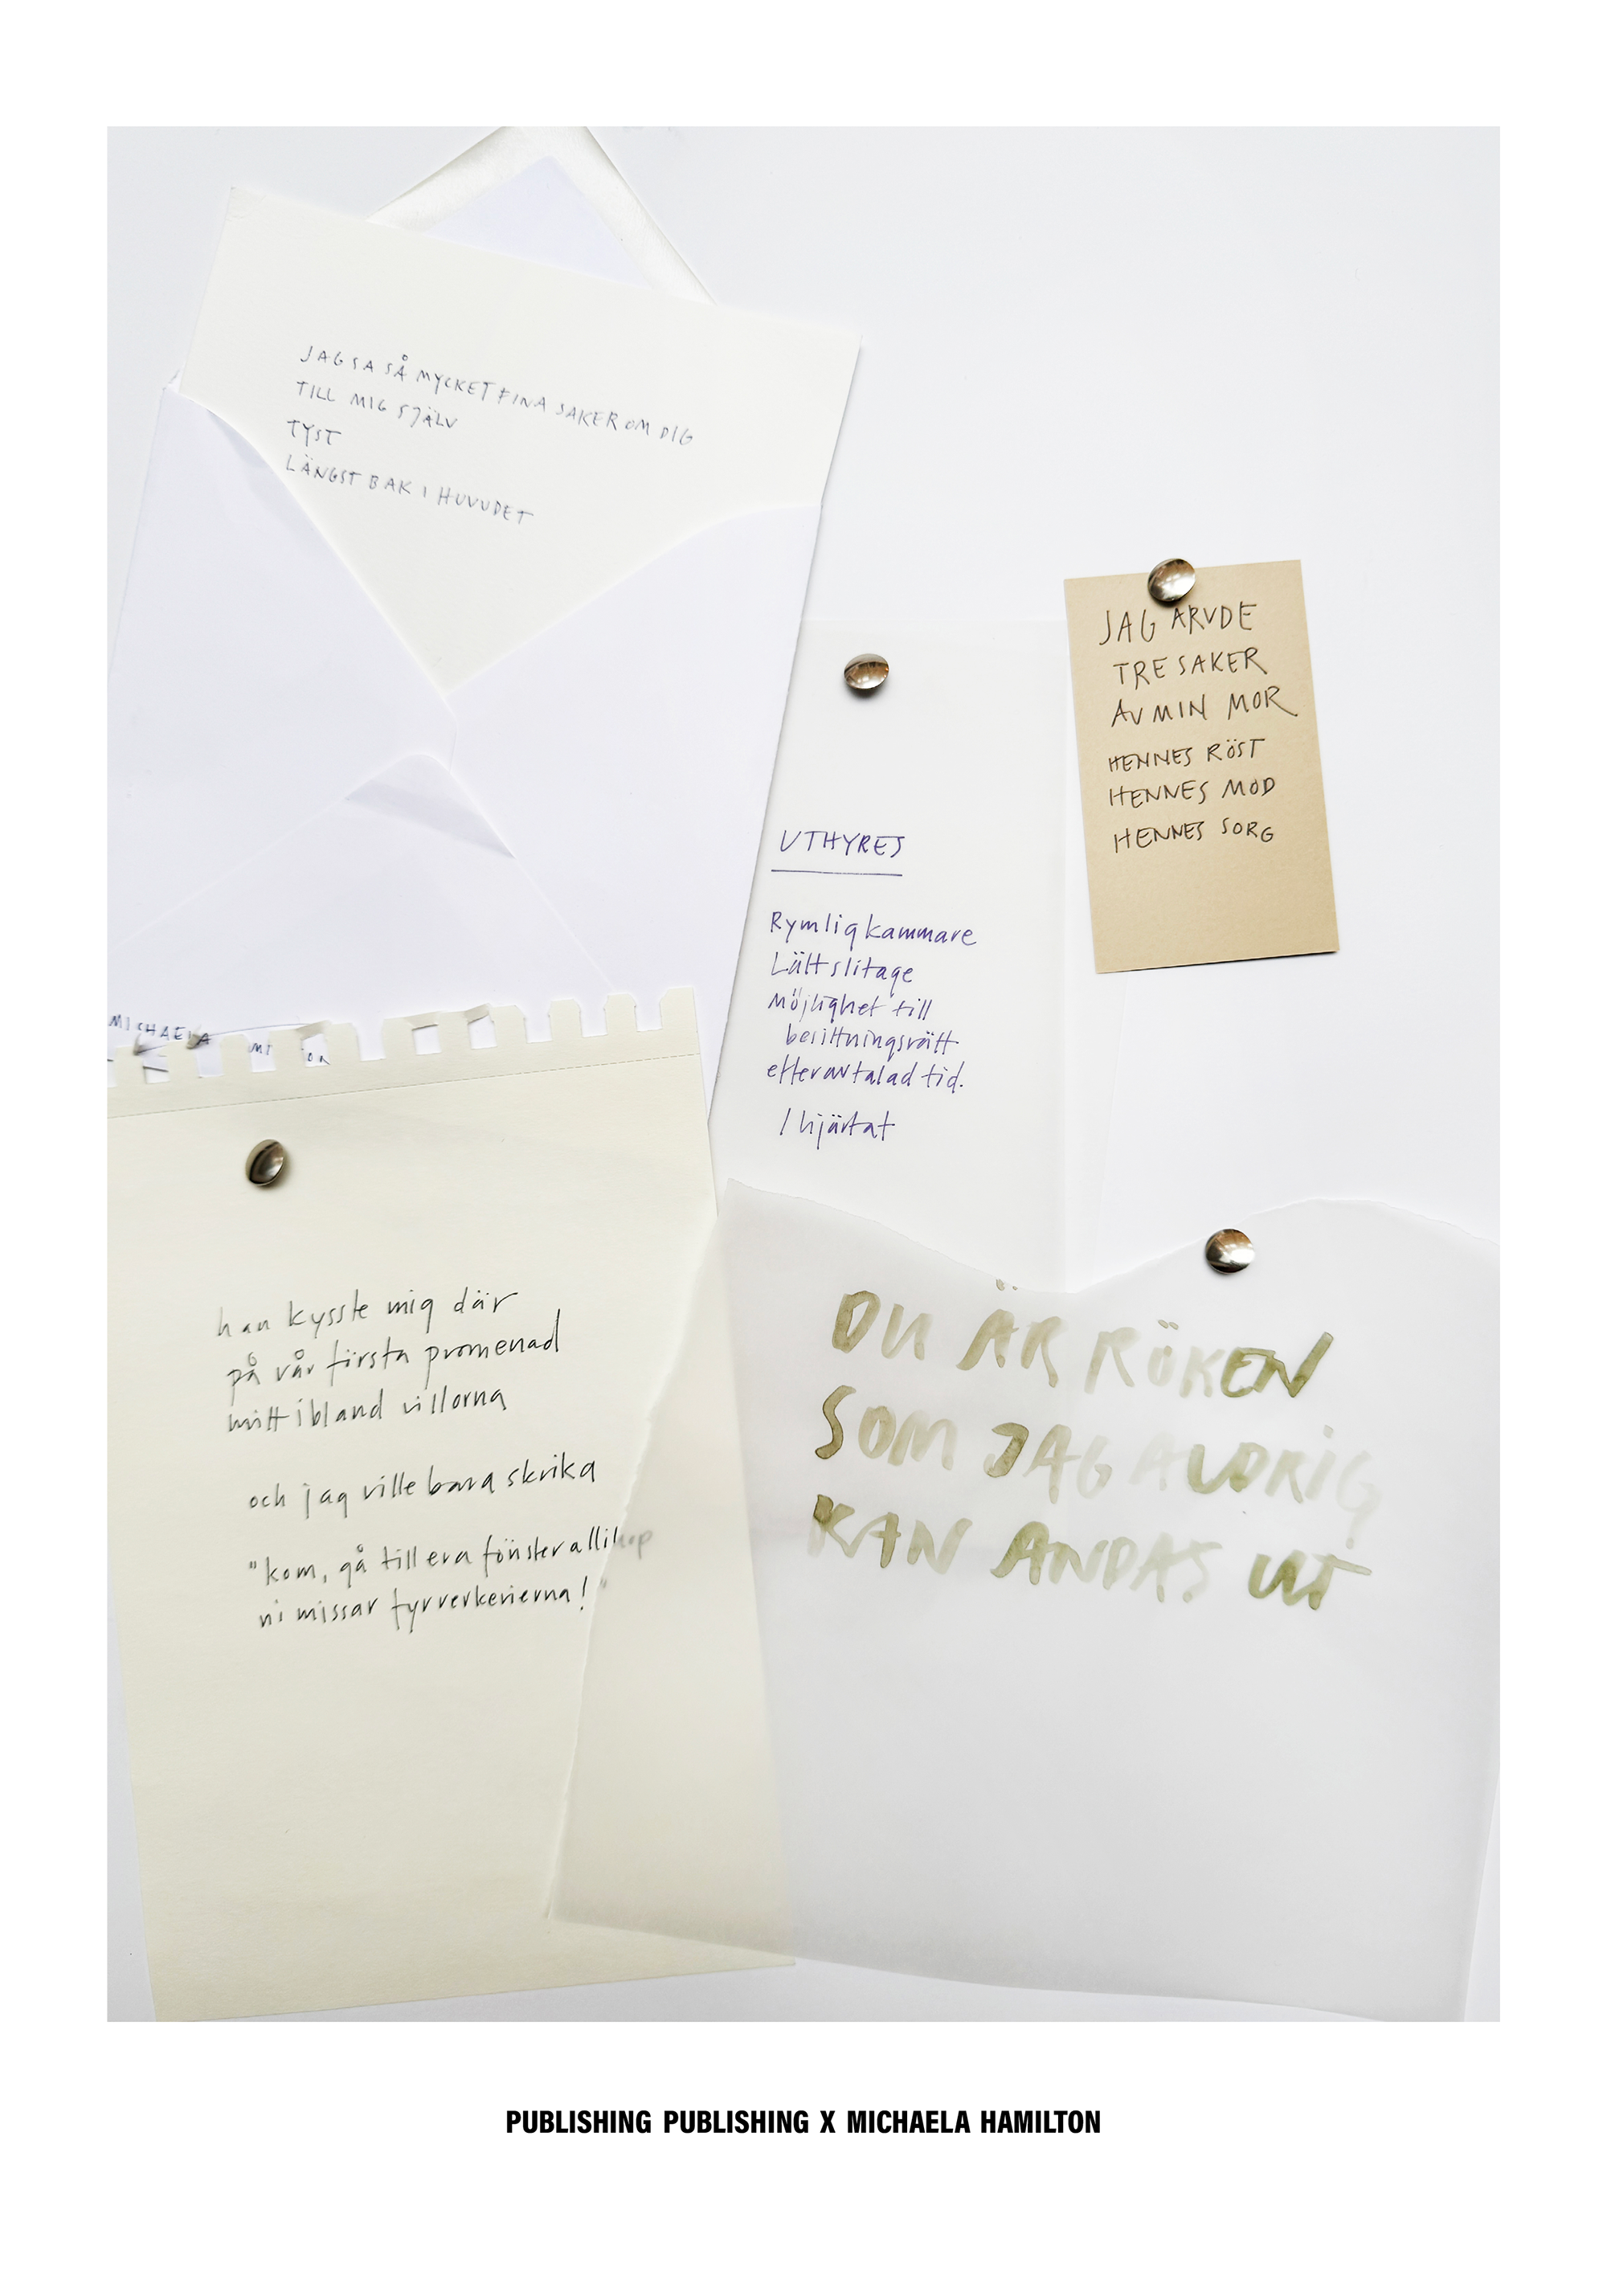 JAG SA SÅ MYCKET FINA SAKER OM DIG
TILL MIG SJÄLV
TYST
LÄNGST BAK I HUVUDET
JAG ÄRVDE
TRE SAKER
AV MIN MOR
HENNES RÖST
HENNES MOD
HENNES SORG
UTHYRES
Rymlig kammare
Lätt slitage
Möjlighet till
besittningsrätt
efter avtalad tid.
I hjärtat
MICHAELA
han kysste mig där
på vår första promenad
mitt ibland villorna
och jag ville bara skrika
"kom, gå till era fönster allihop
ni missar fyrverkerierna!"
DU ÄR RÖKEN
SOM JAG ALDRIG
KAN ANDAS UT
PUBLISHING PUBLISHING X MICHAELA HAMILTON